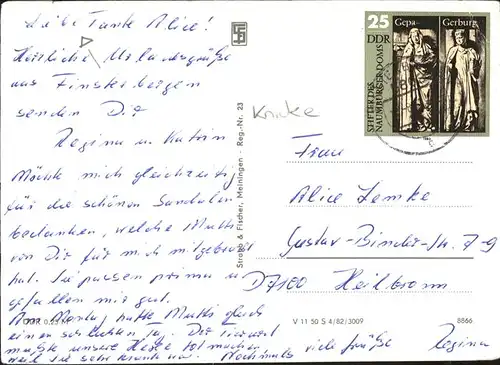 Liebe Tante Alice!
Herzliche Urlaubsgrüße
aus Finsterbergen
senden Dir
Regina u. Katrin
Möchte mich gleichzeitig
für die schönen Sandalen
bedanken, welche Mutti
von Dir für mich mitgebracht
hat. Sie passen prima u.
gefallen mir gut.
Am Montag hatte Mutti gleich
einen schlechten Tag. Der Tierarzt
mußte unsere totmachen
weil sie sehr krank war. Nochmals viele Grüße Regina
DDR 0,25 M
Straub & Fischer, Meiningen · Reg.-Nr. 23
Knicke
25
DDR
Gepa-
Gerburg
STIFTER DES
NAUMBURGER DOMS
Frau
Alice Lemke
Gustav-Binder-Str. 7-9
D7100 Heilbronn
V 11 50 S 4/82/3009
8866